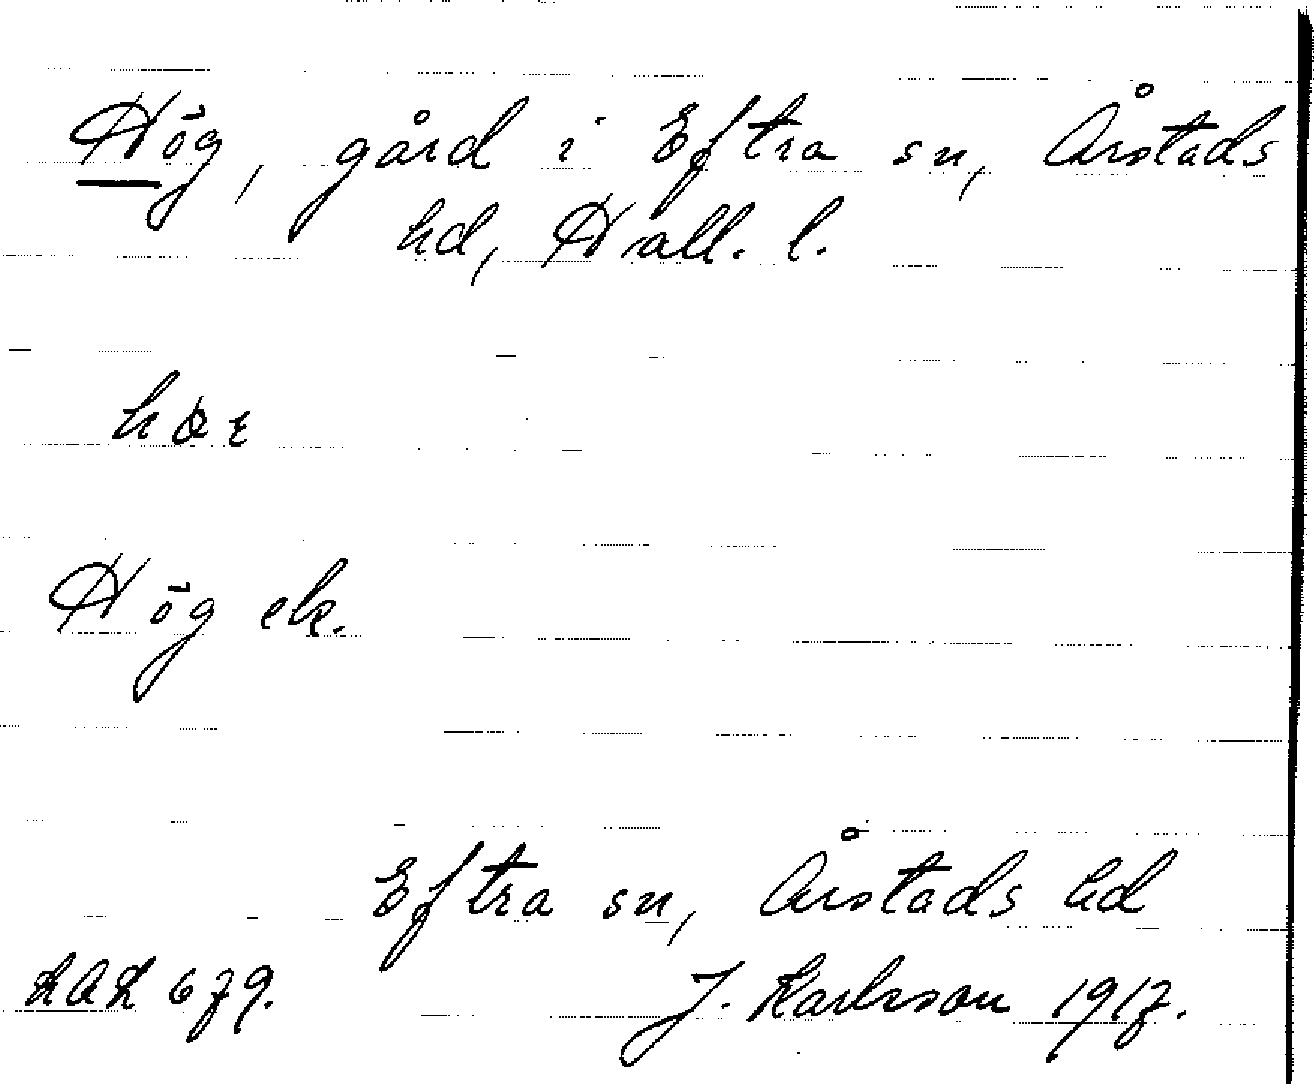 Hög, gård i Eftra sn, Årstads
hd, Hall. l.
Hög ek.
Eftra sn, Årstads hd
LAL 679.
J. Karlsson 1917.